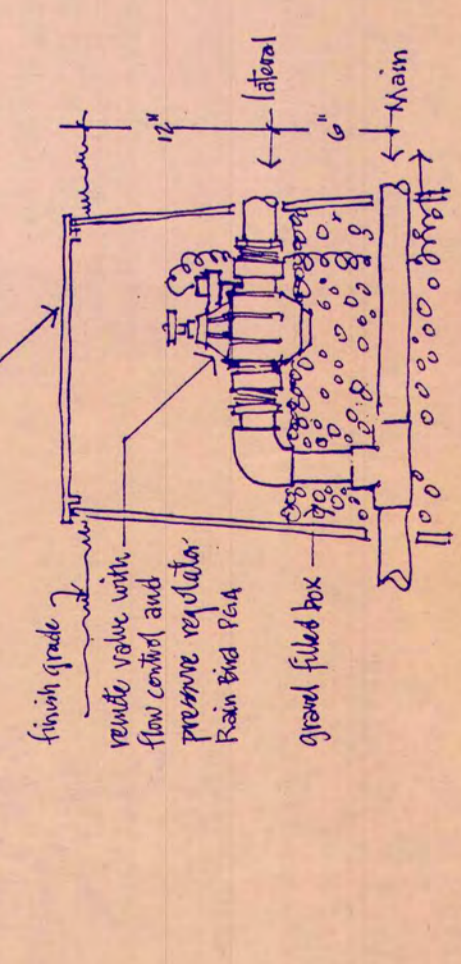 finish grade
remote valve with
flow control and
pressure regulator
Rain Bird PGA
gravel filled box
12"
lateral
6"
Main